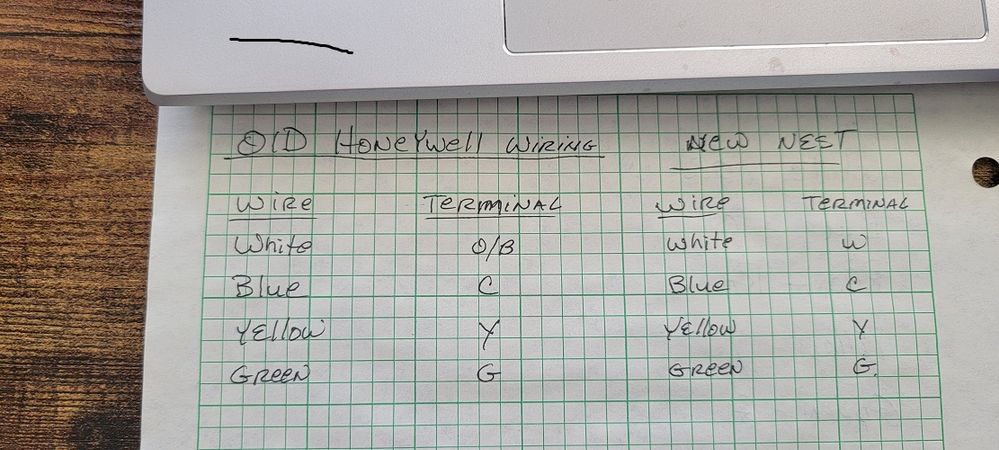 OlD HoneYwell WIRING NEW NEST
WIRE TERMINAL WIRE TERMINAL
White O/B White W
Blue C Blue C
YEllow Y YEllow Y
GREEN G GREEN G.